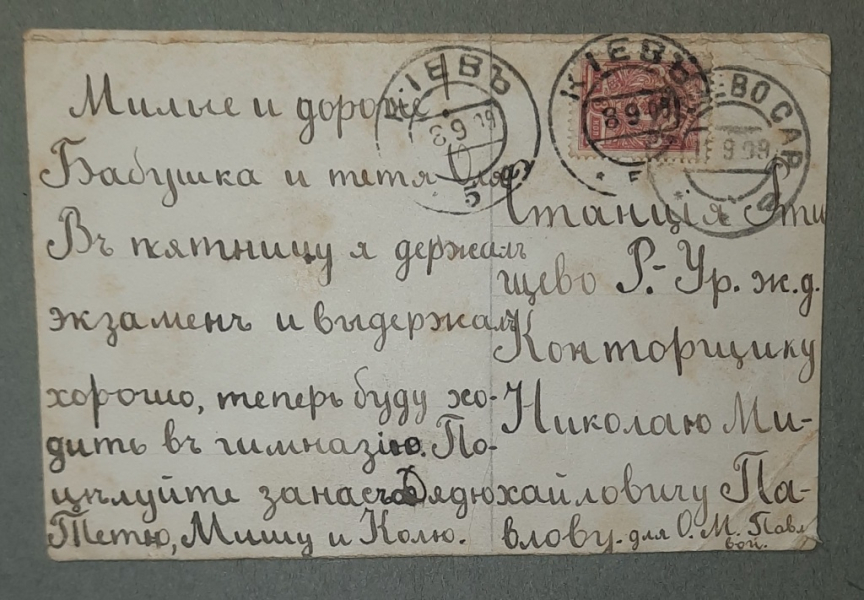 Милые и дорогие
Бабушка и тетя Оля
Въ пятницу я держалъ
экзаменъ и выдержалъ
хорошо, теперь буду хо-
дить въ гимназію. По-
цѣлуйте за насъ Дядю
Тетю, Мишу и Колю.
КІЕВЪ
8 9 09
5
КІЕВЪ
8 9 09
9 09
Станція Рти
щево Р.-Ур. ж.д.
Конторщику
Николаю Ми-
хайловичу Па-
влову. для О. М. Павло
вой.